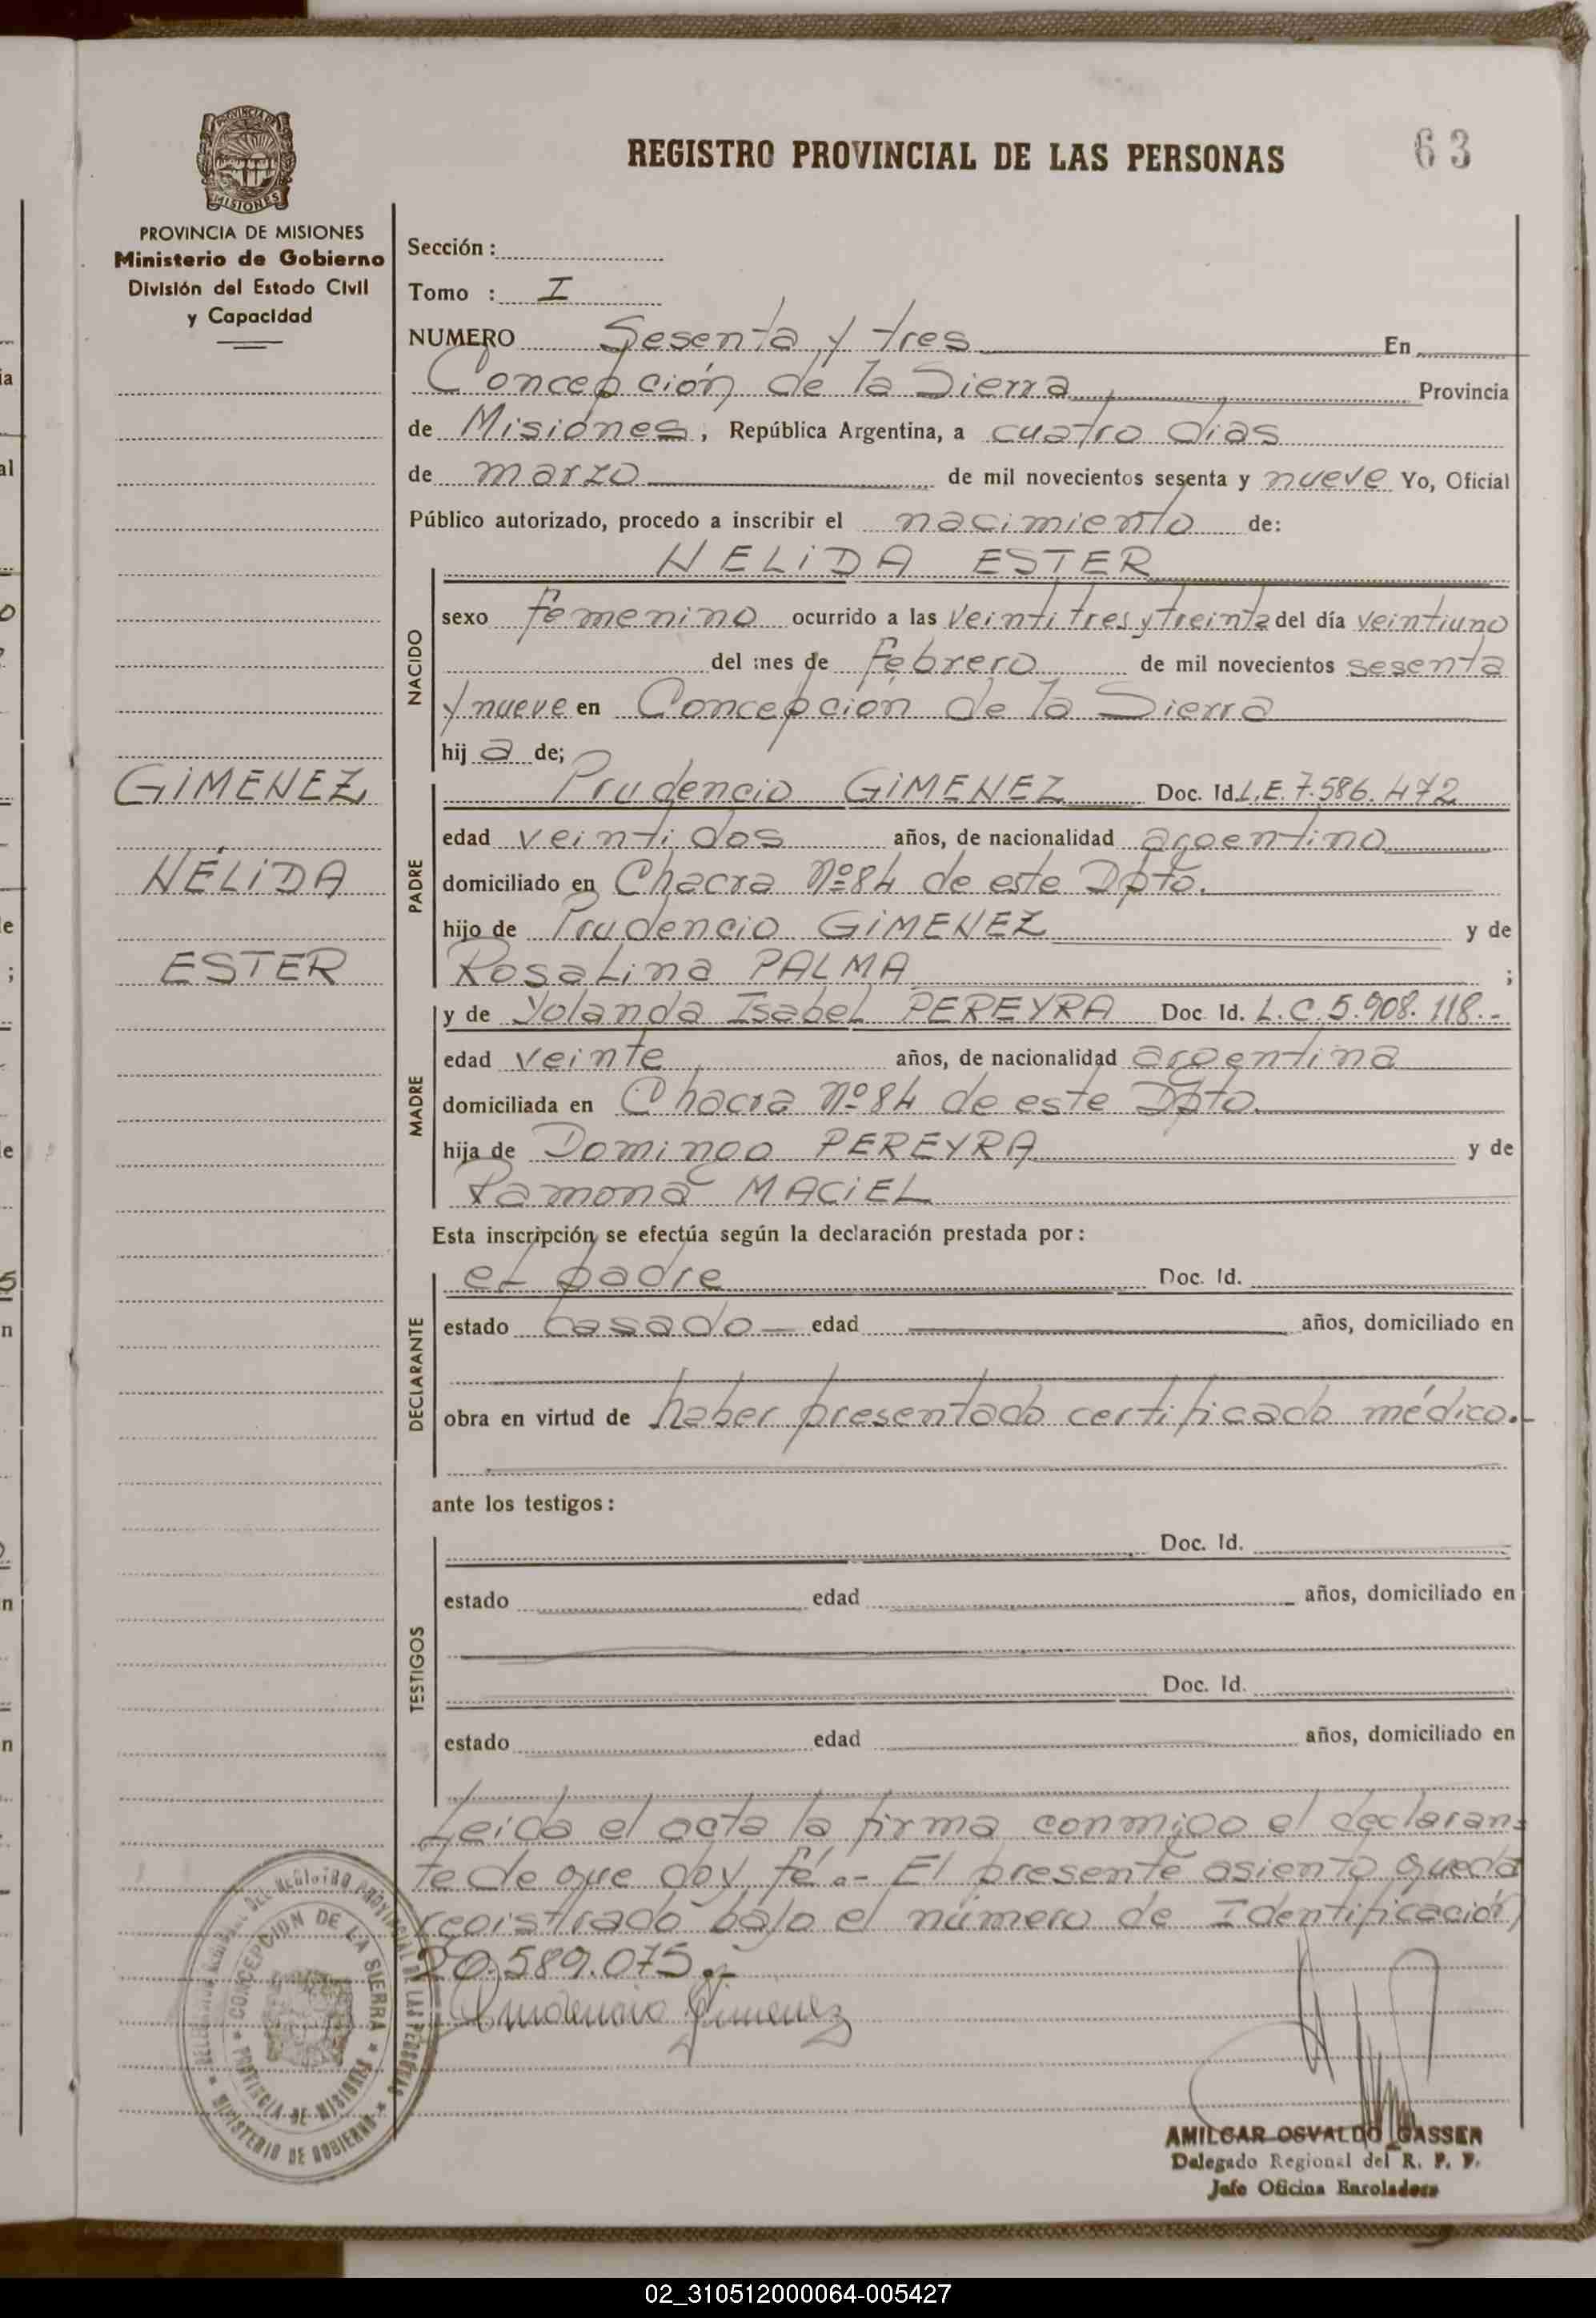 REGISTRO PROVINCIAL DE LAS PERSONAS
63
PROVINCIA DE MISIONES
Ministerio de Gobierno
División del Estado Civil
y Capacidad
GIMENEZ
NÉLIDA
ESTER
Sección :
Tomo : I
NUMERO Sesenta y tres En
Concepción de la Sierra Provincia
de Misiones, República Argentina, a cuatro dias
de marzo de mil novecientos sesenta y nueve Yo, Oficial
Público autorizado, procedo a inscribir el nacimiento de:
NACIDO
NELIDA ESTER
sexo femenino ocurrido a las veintitres y treinta del día veintiuno
del mes de Febrero de mil novecientos sesenta
y nueve en Concepción de la Sierra
hij a de;
PADRE
Prudencio GIMENEZ Doc. Id. L.E. 7.586.472
edad veintidos años, de nacionalidad argentino
domiciliado en Chacra Nº 84 de este Dpto.
hijo de Prudencio GIMENEZ y de
Rosalina PALMA ;
MADRE
y de Yolanda Isabel PEREYRA Doc. Id. L.C. 5.908.118.-
edad veinte años, de nacionalidad argentina
domiciliada en Chacra Nº 84 de este Dpto.
hija de Domingo PEREYRA y de
Ramona MACIEL
Esta inscripción se efectúa según la declaración prestada por :
DECLARANTE
el padre Doc. Id.
estado casado edad años, domiciliado en
obra en virtud de haber presentado certificado médico.-
ante los testigos :
TESTIGOS
Doc. Id.
estado edad años, domiciliado en
Doc. Id.
estado edad años, domiciliado en
Leida el acta la firma conmigo el declaran-
te de que doy fé.- El presente asiento queda
registrado bajo el número de Identificación
20.589.075.-
Prudencio Gimenez
CONCEPCION DE LA SIERRA
PROVINCIA DE MISIONES
MINISTERIO DE GOBIERNO
AMILCAR OSVALDO GASSER
Delegado Regional del R. P. P.
Jefe Oficina Enroladora
02_310512000064-005427